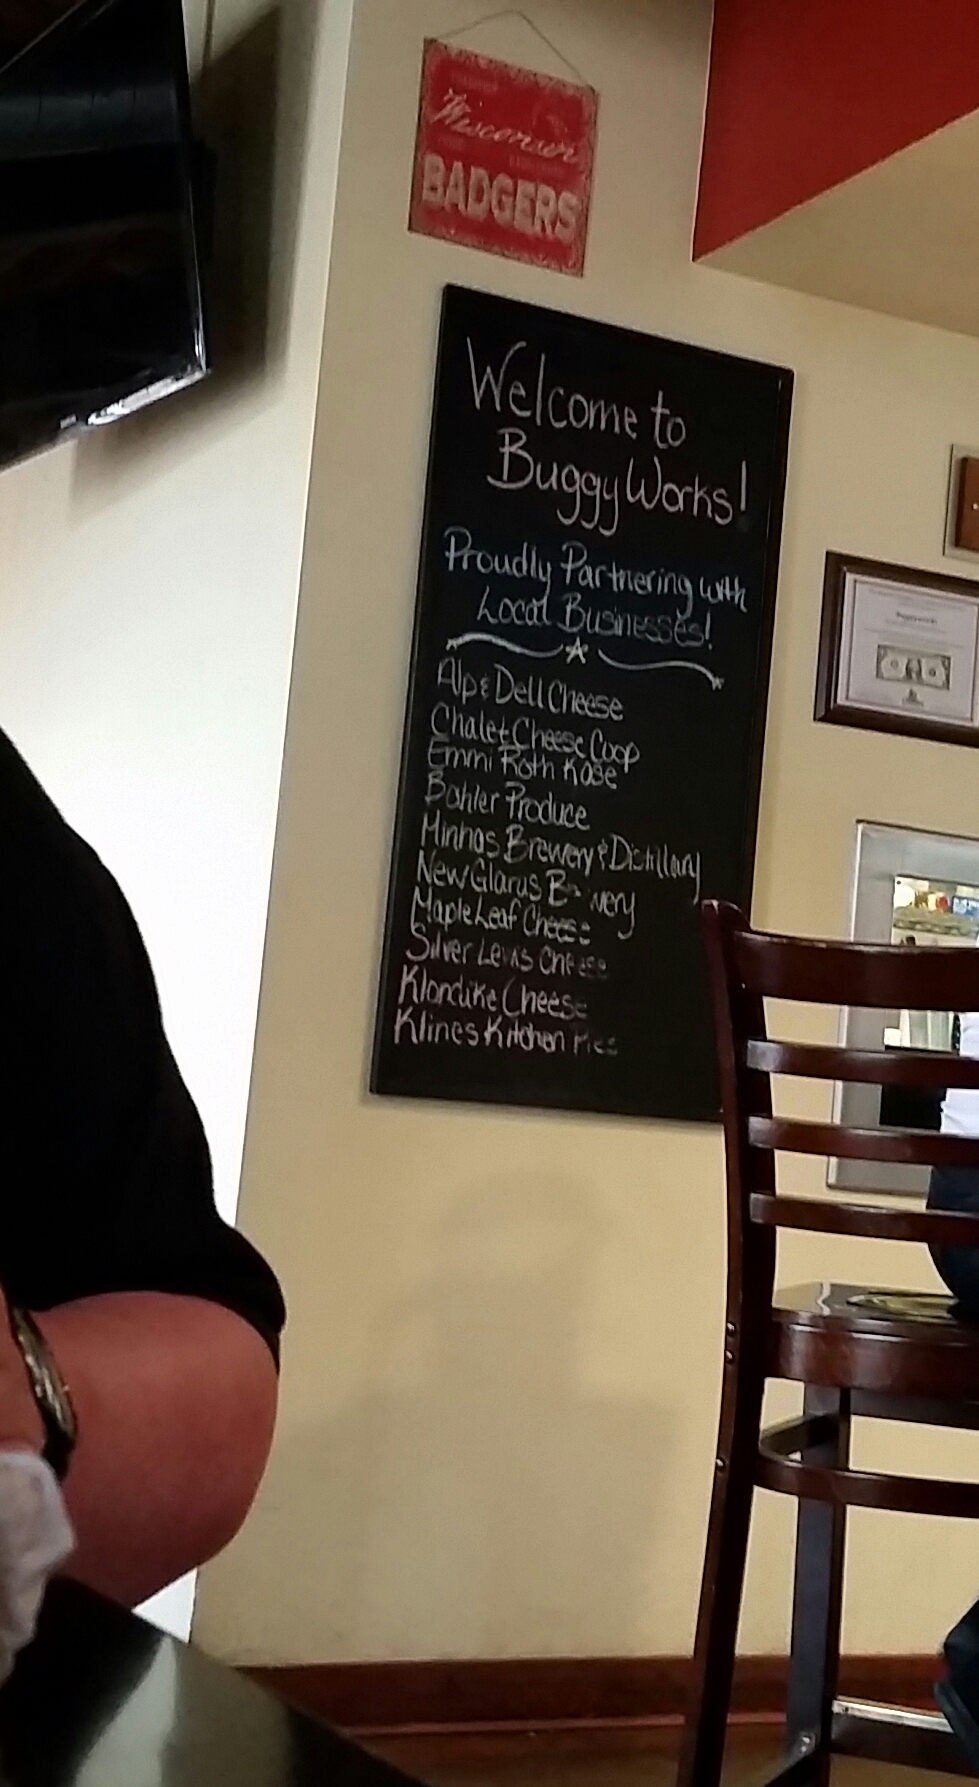 Wisconsin
BADGERS
Welcome to
BuggyWorks!
Proudly Partnering with
Local Businesses!
Alp & Dell Cheese
Chalet Cheese Coop
Emmi Roth Kase
Bahler Produce
Minhas Brewery & Distillary
New Glarus B wery
Maple Leaf Cheese
Silver Lewis Cheese
Klondike Cheese
Klines Kitchen Pies